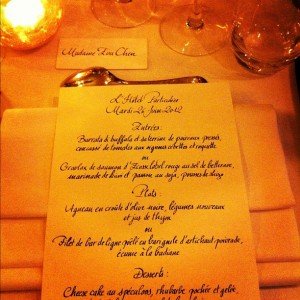 Madame Eva Chen
L'Hôtel Particulier
Mardi 26 Juin 2012
Entrées:
Burrata di buffala et suterine de poivrons,
concassé de tomates aux agrumes, et roquette
ou
Gravlax de saumon d'Ecosse label rouge au sel de betterave,
marinade de et au soja, pousses de shizo
Plats
Agneau en croûte d'olive noire, légumes nouveaux
et jus de thym
ou
Filet de bar de ligne rôti en barigoule d'artichaut poivrade,
écume à la badiane
Desserts:
Cheese cake au spéculoos, rhubarbe pochée et gelée,